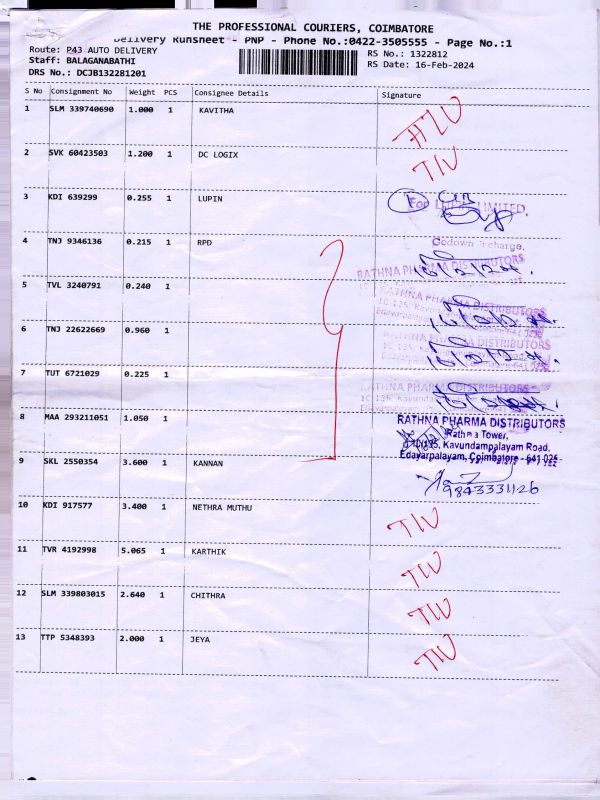 THE PROFESSIONAL COURIERS, COIMBATORE
Delivery Runsheet - PNP - Phone No.:0422-3505555 - Page No.:1
Route: P43 AUTO DELIVERY
RS No.: 1322812
Staff: BALAGANABATHI
RS Date: 16-Feb-2024
DRS No.: DCJB132281201
S No Consignment No Weight PCS Consignee Details Signature
1 SLM 339740690 1.000 1 KAVITHA
2 SVK 60423503 1.200 1 DC LOGIX TIU
3 KDI 639299 0.255 1 LUPIN
For LUPIN LIMITED.
4 TNJ 9346136 0.215 1 RPD
Godown Incharge.
RATHNA PHARMA DISTRIBUTORS
16/2/24.
5 TVL 3240791 0.240 1
RATHNA PHARMA DISTRIBUTORS
6 TNJ 22622669 0.960 1
RATHNA PHARMA DISTRIBUTORS
7 TUT 6721029 0.225 1
RATHNA PHARMA DISTRIBUTORS
8 MAA 293211051 1.050 1
RATHNA PHARMA DISTRIBUTORS
Rathna Tower,
Kavundampalayam Road,
Edayarpalayam, Coimbatore - 641 025
9 SKL 2550354 3.600 1 KANNAN
9843331126
10 KDI 917577 3.400 1 NETHRA MUTHU TIU
11 TVR 4192998 5.065 1 KARTHIK TIU
12 SLM 339803015 2.640 1 CHITHRA TIU
13 TTP 5348393 2.000 1 JEYA TIU